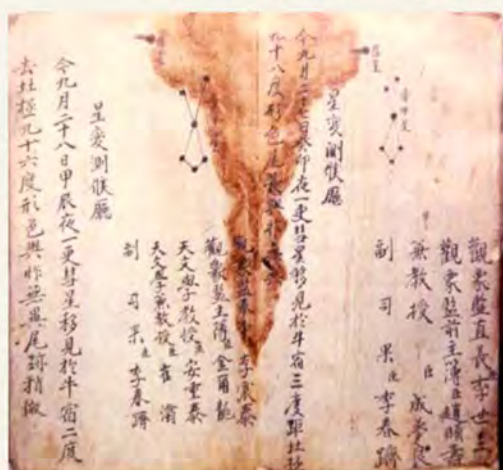 觀象監直長李世
觀象監前主簿臣趙頤壽
兼教授 臣 成夢良
副司果 臣 李春躋
星變測候廳
今九月二十七日癸卯夜一更彗星移見於牛宿三度距北極
九十八度形色尾長與
李寅泰
觀象監主簿臣金爾龍
天文學教授臣安重泰
天文學兼教授臣崔
副司果臣李春躋
星變測候廳
今九月二十八日甲辰夜一更彗星移見於牛宿二度
去北極九十六度形色與昨無異尾跡稍微